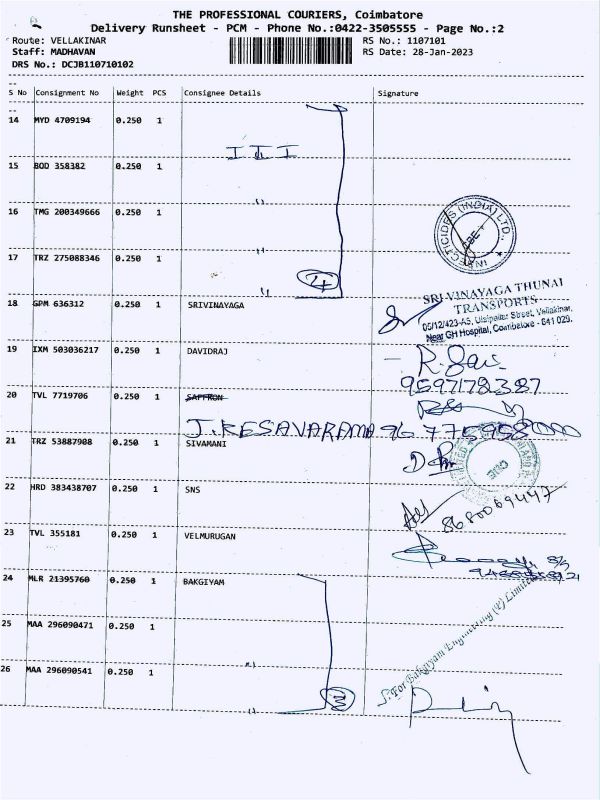 THE PROFESSIONAL COURIERS, Coimbatore
Delivery Runsheet - PCM - Phone No.:0422-3505555 - Page No.:2
Route: VELLAKINAR RS No.: 1107101
Staff: MADHAVAN RS Date: 28-Jan-2023
DRS No.: DCJB110710102
S No Consignment No Weight PCS Consignee Details Signature
14 MYD 4709194 0.250 1
I I I
15 BOD 358382 0.250 1
16 TMG 200349666 0.250 1 "
INSECTICIDES (INDIA) LTD.
CBE
17 TRZ 275088346 0.250 1 "
" 4
18 GPM 636312 0.250 1 SRIVINAYAGA
SRI VINAYAGA THUNAI
TRANSPORTS
05/12/423-A5, Street, Vellakinar,
Near GH Hospital, Coimbatore - 641 029.
19 IXM 503036217 0.250 1 DAVIDRAJ
20 TVL 7719706 0.250 1 SAFFRON
J.KESAVARAMA
21 TRZ 53887908 0.250 1 SIVAMANI
CBE
22 HRD 383438707 0.250 1 SNS
8680069447
23 TVL 355181 0.250 1 VELMURUGAN
24 MLR 21395760 0.250 1 BAKGIYAM
25 MAA 296090471 0.250 1
For Bakgiyam Engineering (P) Limited
26 MAA 296090541 0.250 1 "
" 3